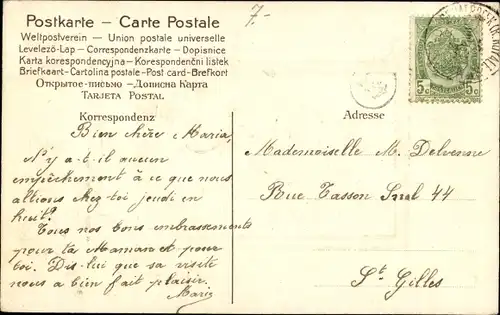 Postkarte – Carte Postale
7.-
Weltpostverein – Union postale universelle
Levelező-Lap – Correspondenzkarte – Dopisnice
Karta korespondencyjna – Korespondenční listek
Briefkaart – Cartolina postale – Post card – Brefkort
Открытое-письмо – Дописна Карта
Tarjeta Postal
5c 5c
Korrespondenz
Adresse
Bien chère Maria,
N'y a-t-il aucun
empêchement à ce que nous
allions chez toi jeudi en
huit?
Tous nos bons embrassements
pour ta Maman et pour
toi. Dis-lui que sa visite
nous a bien fait plaisir.
Maria
Mademoiselle M. Delvenne
Rue Tasson Snel 44
St Gilles